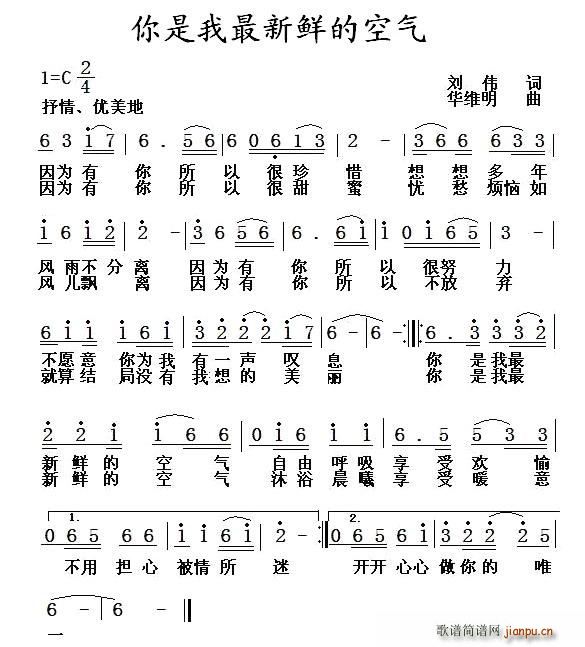 你是我最新鲜的空气
1=C 2/4
刘伟 词
抒情、优美地
华维明 曲
6 3 i 7 | 6 . 5 6 | 6 0 6 1 3 | 2 - | 3 6 6 3 3 |
因为有 你所以很珍惜 想想多年
因为有 你所以很甜蜜 忧愁烦恼如
i 6 i 2 | 2 - | 3 6 5 6 | 6 . 6 i | i 0 i 6 5 | 3 - |
风雨不分离 因为有 你所以很努力
风儿飘离 因为有 你所以不放弃
6 i i i 6 i | 3 2 2 2 i 7 | 6 - | 6 - :| 6 . 3 3 3 2 |
不愿意 你为我 有一声叹息 你是我最
就算结局没有我想的美丽 你是我最
2 2 i i 6 6 | 0 i 6 i i | 6 . 5 5 3 3 |
新鲜的空气 自由呼吸享受欢愉
新鲜的空气 沐浴晨曦享受暖意
1. 2.
0 6 5 6 6 | i i 6 i | 2 - :| 0 6 5 6 i | 3 2 2 2 5 |
不用担心 被情所迷 开开心心做你的唯
6 - | 6 - ||
一
歌谱简谱网
jianpu.cn